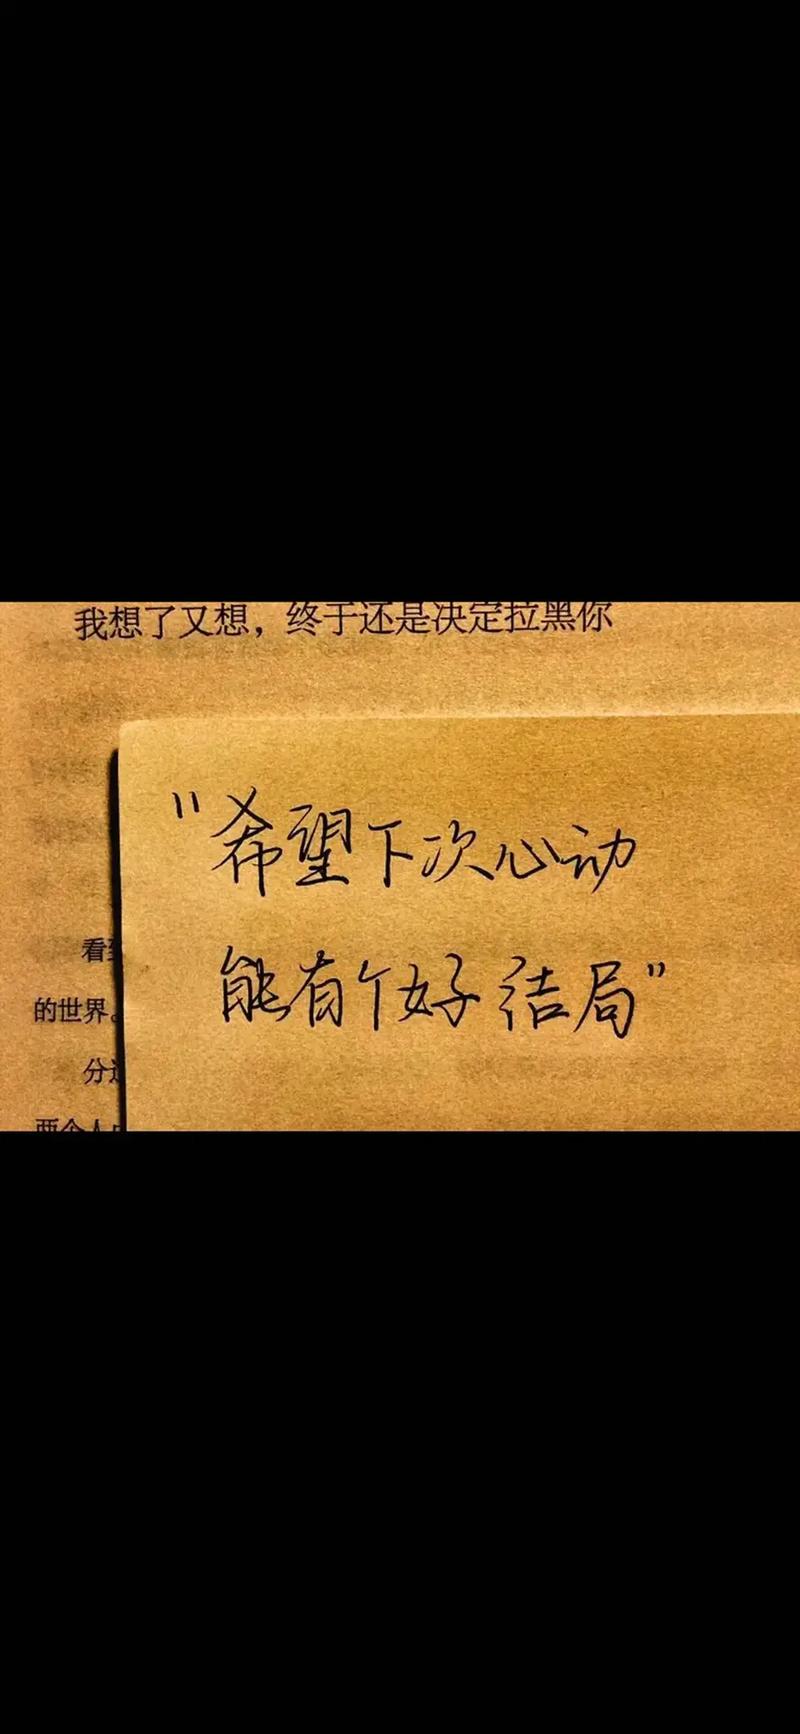 我想了又想，终于还是决定拉黑你
"希望下次心动
能有个好结局"
看到
的世界。
分
两个人